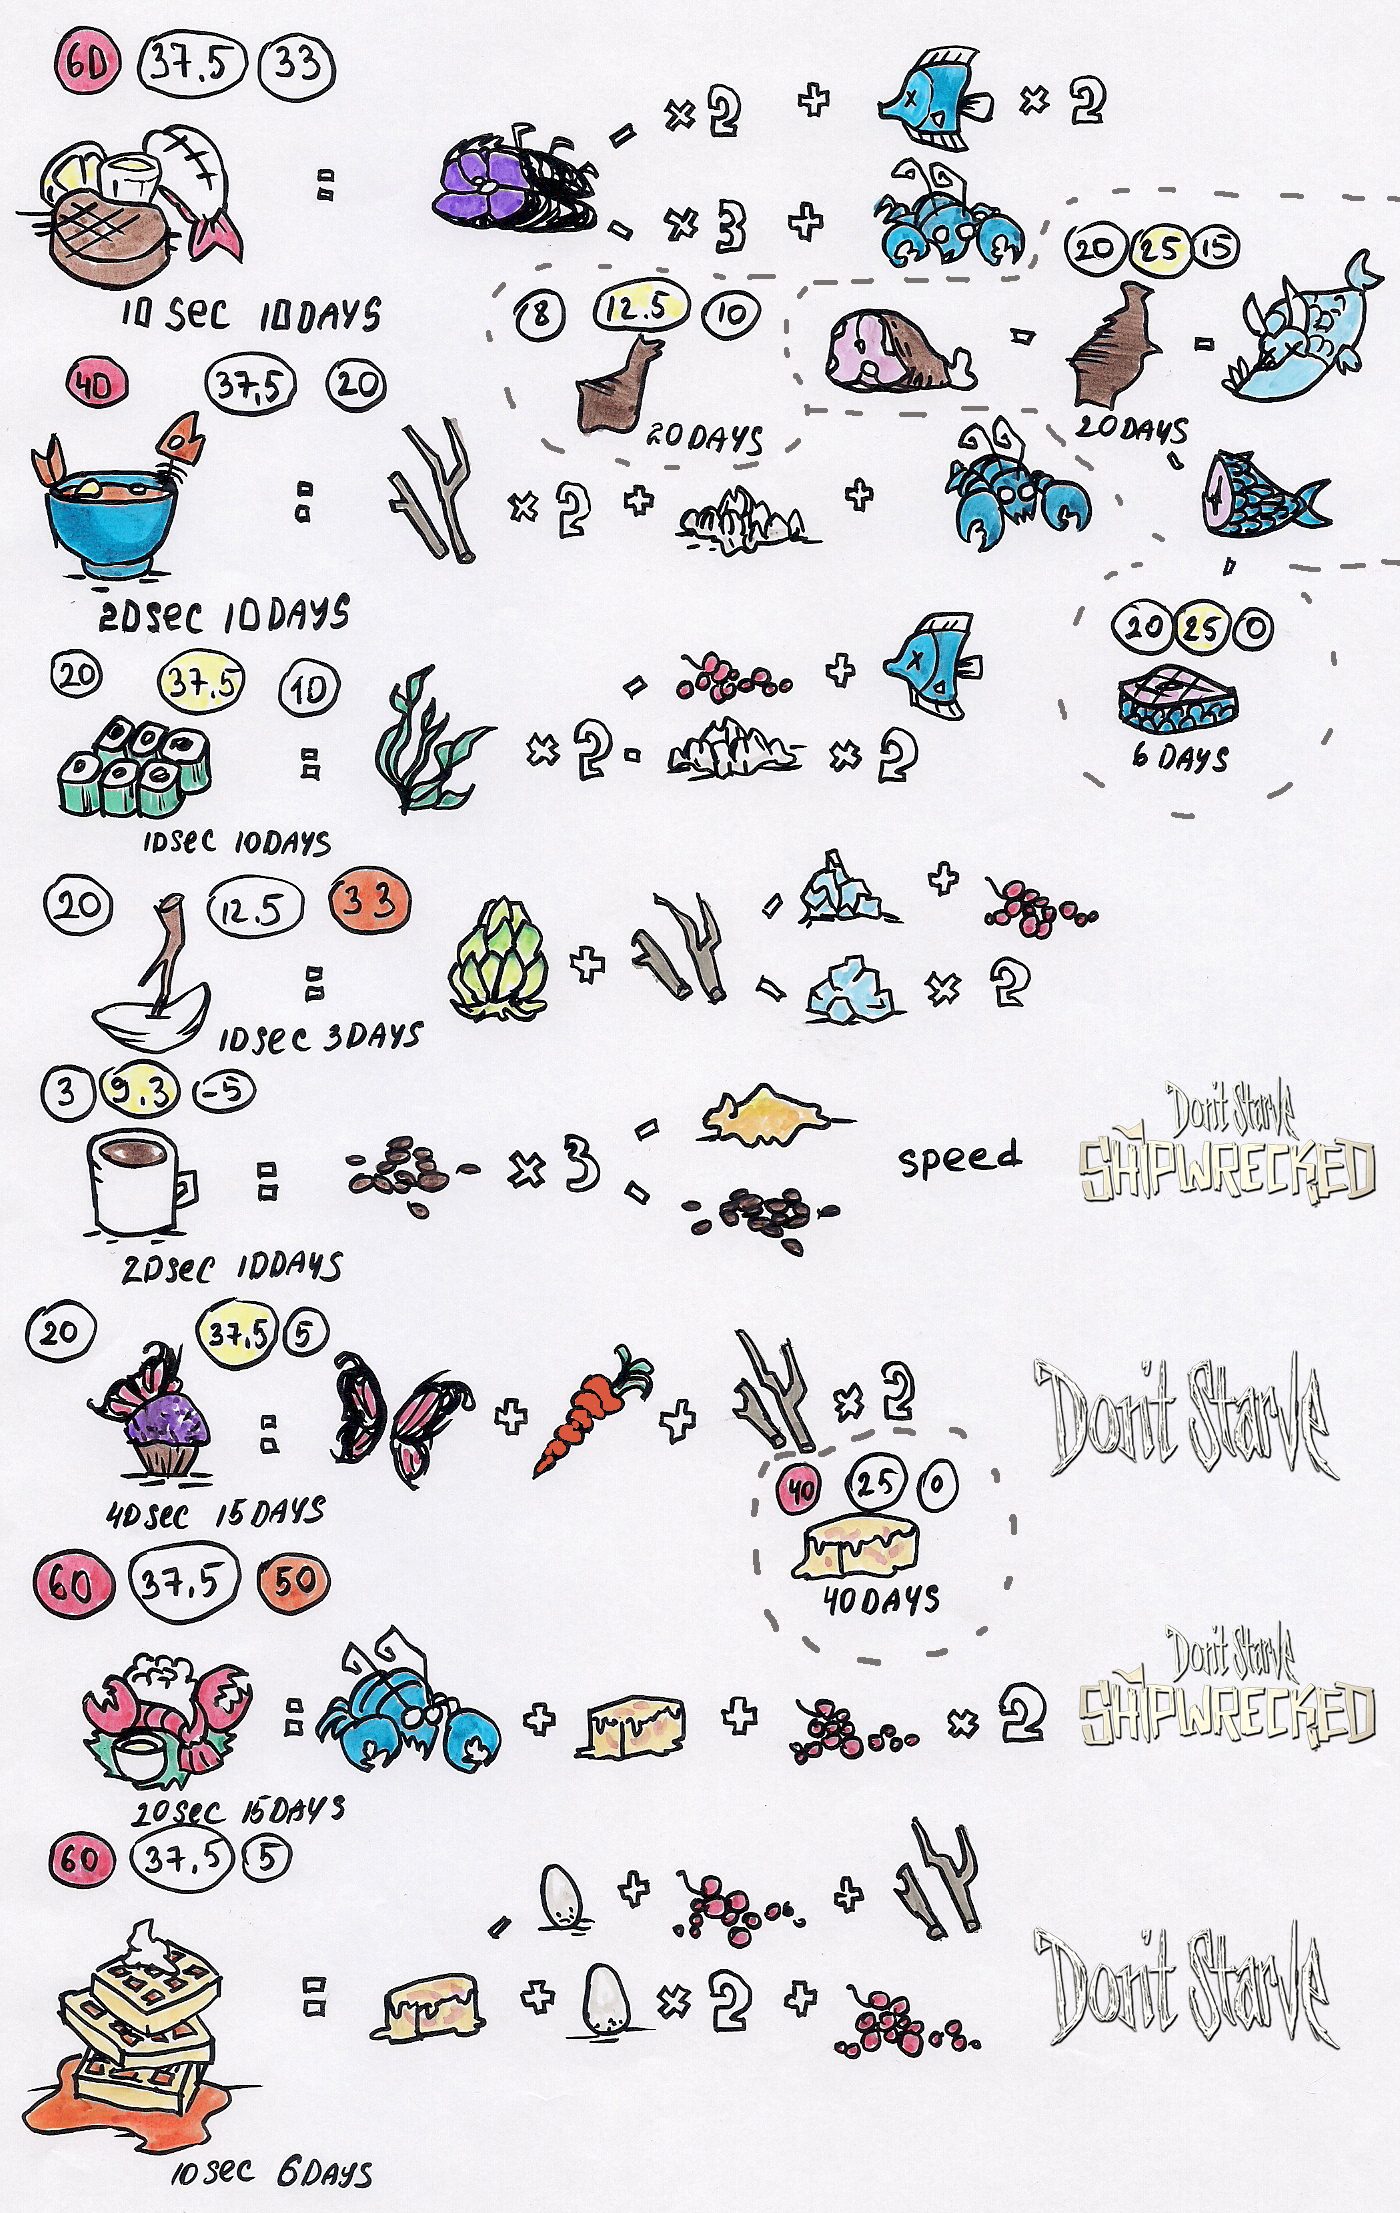 60 37.5 33
× 2 + × 2
=
× 3 +
20 25 15
10 sec 10 DAYS
8 12.5 10
40 37,5 20
20 DAYS
20 DAYS
= × 2 + +
20 sec 10 DAYS
20 25 0
20 37.5 10
+
6 DAYS
= × 2 × 2
10 sec 10 DAYS
20 12.5 33
+
= +
× 2
10 sec 3 DAYS
3 9.3 -5
Don't Starve
SHIPWRECKED
= × 3
speed
20 sec 10 DAYS
20 37,5 5
= + + × 2
Don't Starve
40 25 0
40 sec 15 DAYS
40 DAYS
60 37,5 50
Don't Starve
SHIPWRECKED
= + + × 2
20 sec 15 DAYS
60 37.5 5
+ +
= + × 2 +
Don't Starve
10 sec 6 DAYS